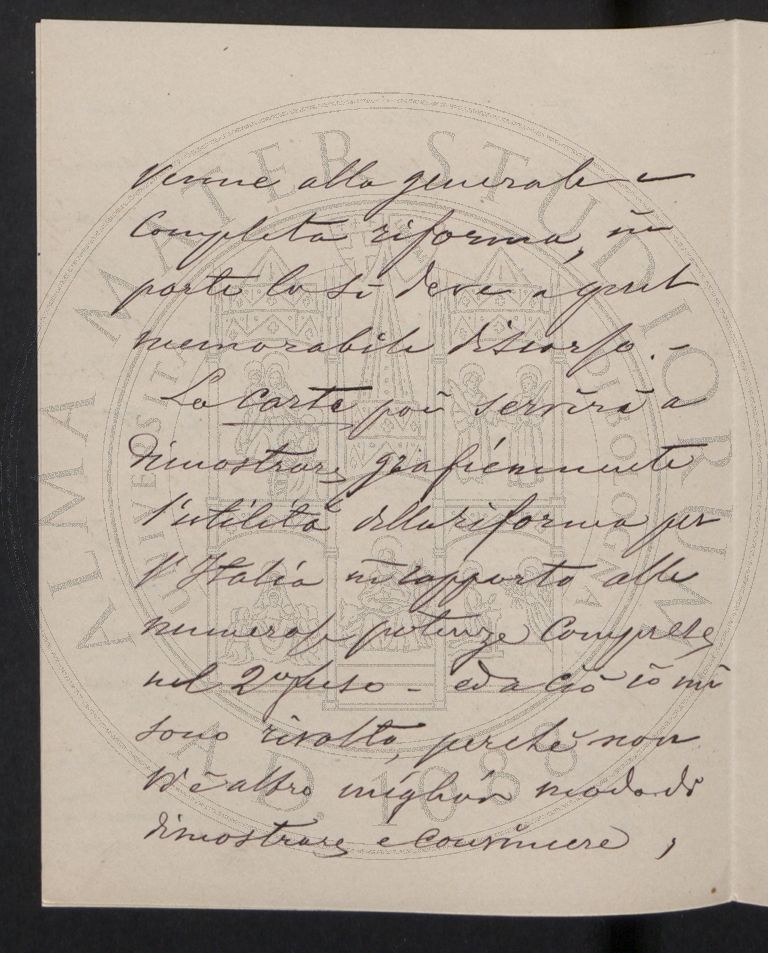 venne alla generale e
completa riforma, in
parte lo si deve a quel
memorabile discorso. -
La carta poi servirà a
dimostrare graficamente
l'utilità della riforma per
l'Italia in rapporto alle
numerose potenze comprese
nel 2º fuso - ed a ciò io mi
sono rivolto, perchè non
vi è altro miglior modo di
dimostrare e convincere,
ALMA MATER STUDIORUM
UNIVERSITA DI BOLOGNA
A.D. 1088